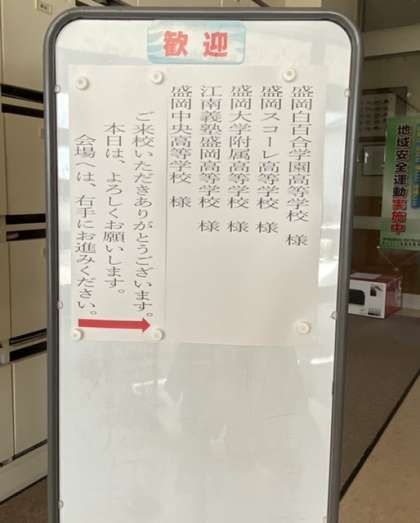 歓迎
盛岡白百合学園高等学校　様
盛岡スコーレ高等学校　様
盛岡大学附属高等学校　様
江南義塾盛岡高等学校　様
盛岡中央高等学校　様
ご来校いただきありがとうございます。
本日は、よろしくお願いします。
会場へは、右手にお進みください。
地域安全運動実施中